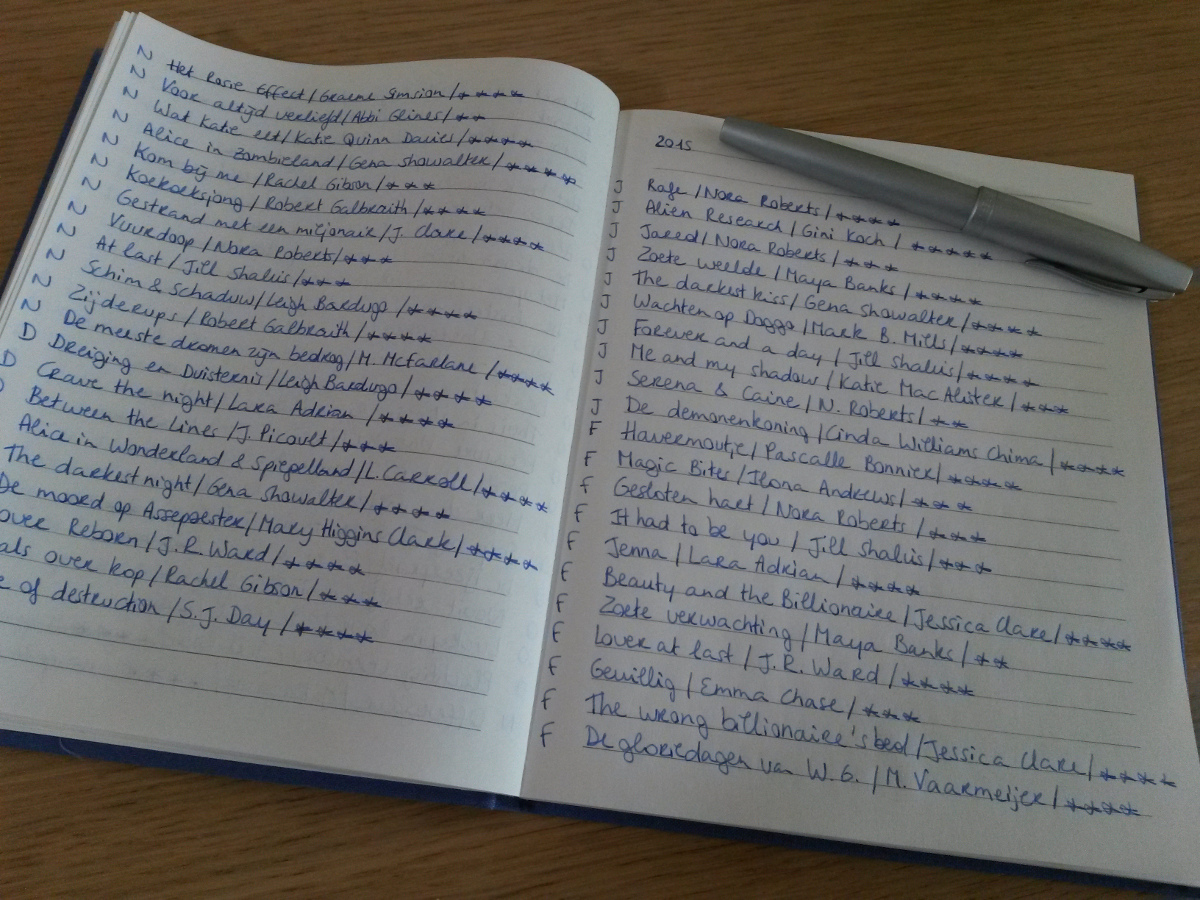 N Het Rosie Effect / Graeme Simsion / ****
N Voor altijd verliefd / Abbi Glines / **
N Wat Katie eet / Katie Quinn Davies / ****
N Alice in Zombieland / Gena Showalter / ****
N Kom bij me / Rachel Gibson / ***
N Koekoeksjong / Robert Galbraith / ****
N Gestrand met een miljonair / J. Clare / ****
N Vuurdoop / Nora Roberts / ***
N At last / Jill Shalvis / ***
N Schim & Schaduw / Leigh Bardugo / ****
N Zijderups / Robert Galbraith / ****
N De meeste dromen zijn bedrog / M. McFarlane / ****
D Dreiging en Duisternis / Leigh Bardugo / ****
D Crave the night / Lara Adrian / ****
Between the Lines / J. Picoult / ***
Alice in Wonderland & Spiegelland / L. Carroll / ****
The darkest night / Gena Showalter / ****
De moord op Assepoester / Mary Higgins Clark / ****
over Reborn / J.R. Ward / ****
als over kop / Rachel Gibson / ***
e of destruction / S.J. Day / ****
2015
J Rafe / Nora Roberts / ****
J Alien Research / Gini Koch / *****
J Jared / Nora Roberts / ***
J Zoete weelde / Maya Banks / ****
J The darkest kiss / Gena Showalter / ****
J Wachten op Doggo / Mark B. Mills / ****
J Forever and a day / Jill Shalvis / ****
J Me and my shadow / Katie MacAlister / ***
J Serena & Caine / N. Roberts / **
J De demonenkoning / Cinda Williams Chima / ****
F Havermoutje / Pascalle Bonnier / ****
F Magic Bites / Ilona Andrews / ***
F Gesloten hart / Nora Roberts / ***
F It had to be you / Jill Shalvis / ***
F Jenna / Lara Adrian / ****
F Beauty and the Billionaire / Jessica Clare / ****
F Zoete verwachting / Maya Banks / **
F Lover at last / J.R. Ward / ****
F Gewillig / Emma Chase / ***
F The wrong billionaire's bed / Jessica Clare / ****
F De gloriedagen van W.G. / M. Vaarmeijer / ****